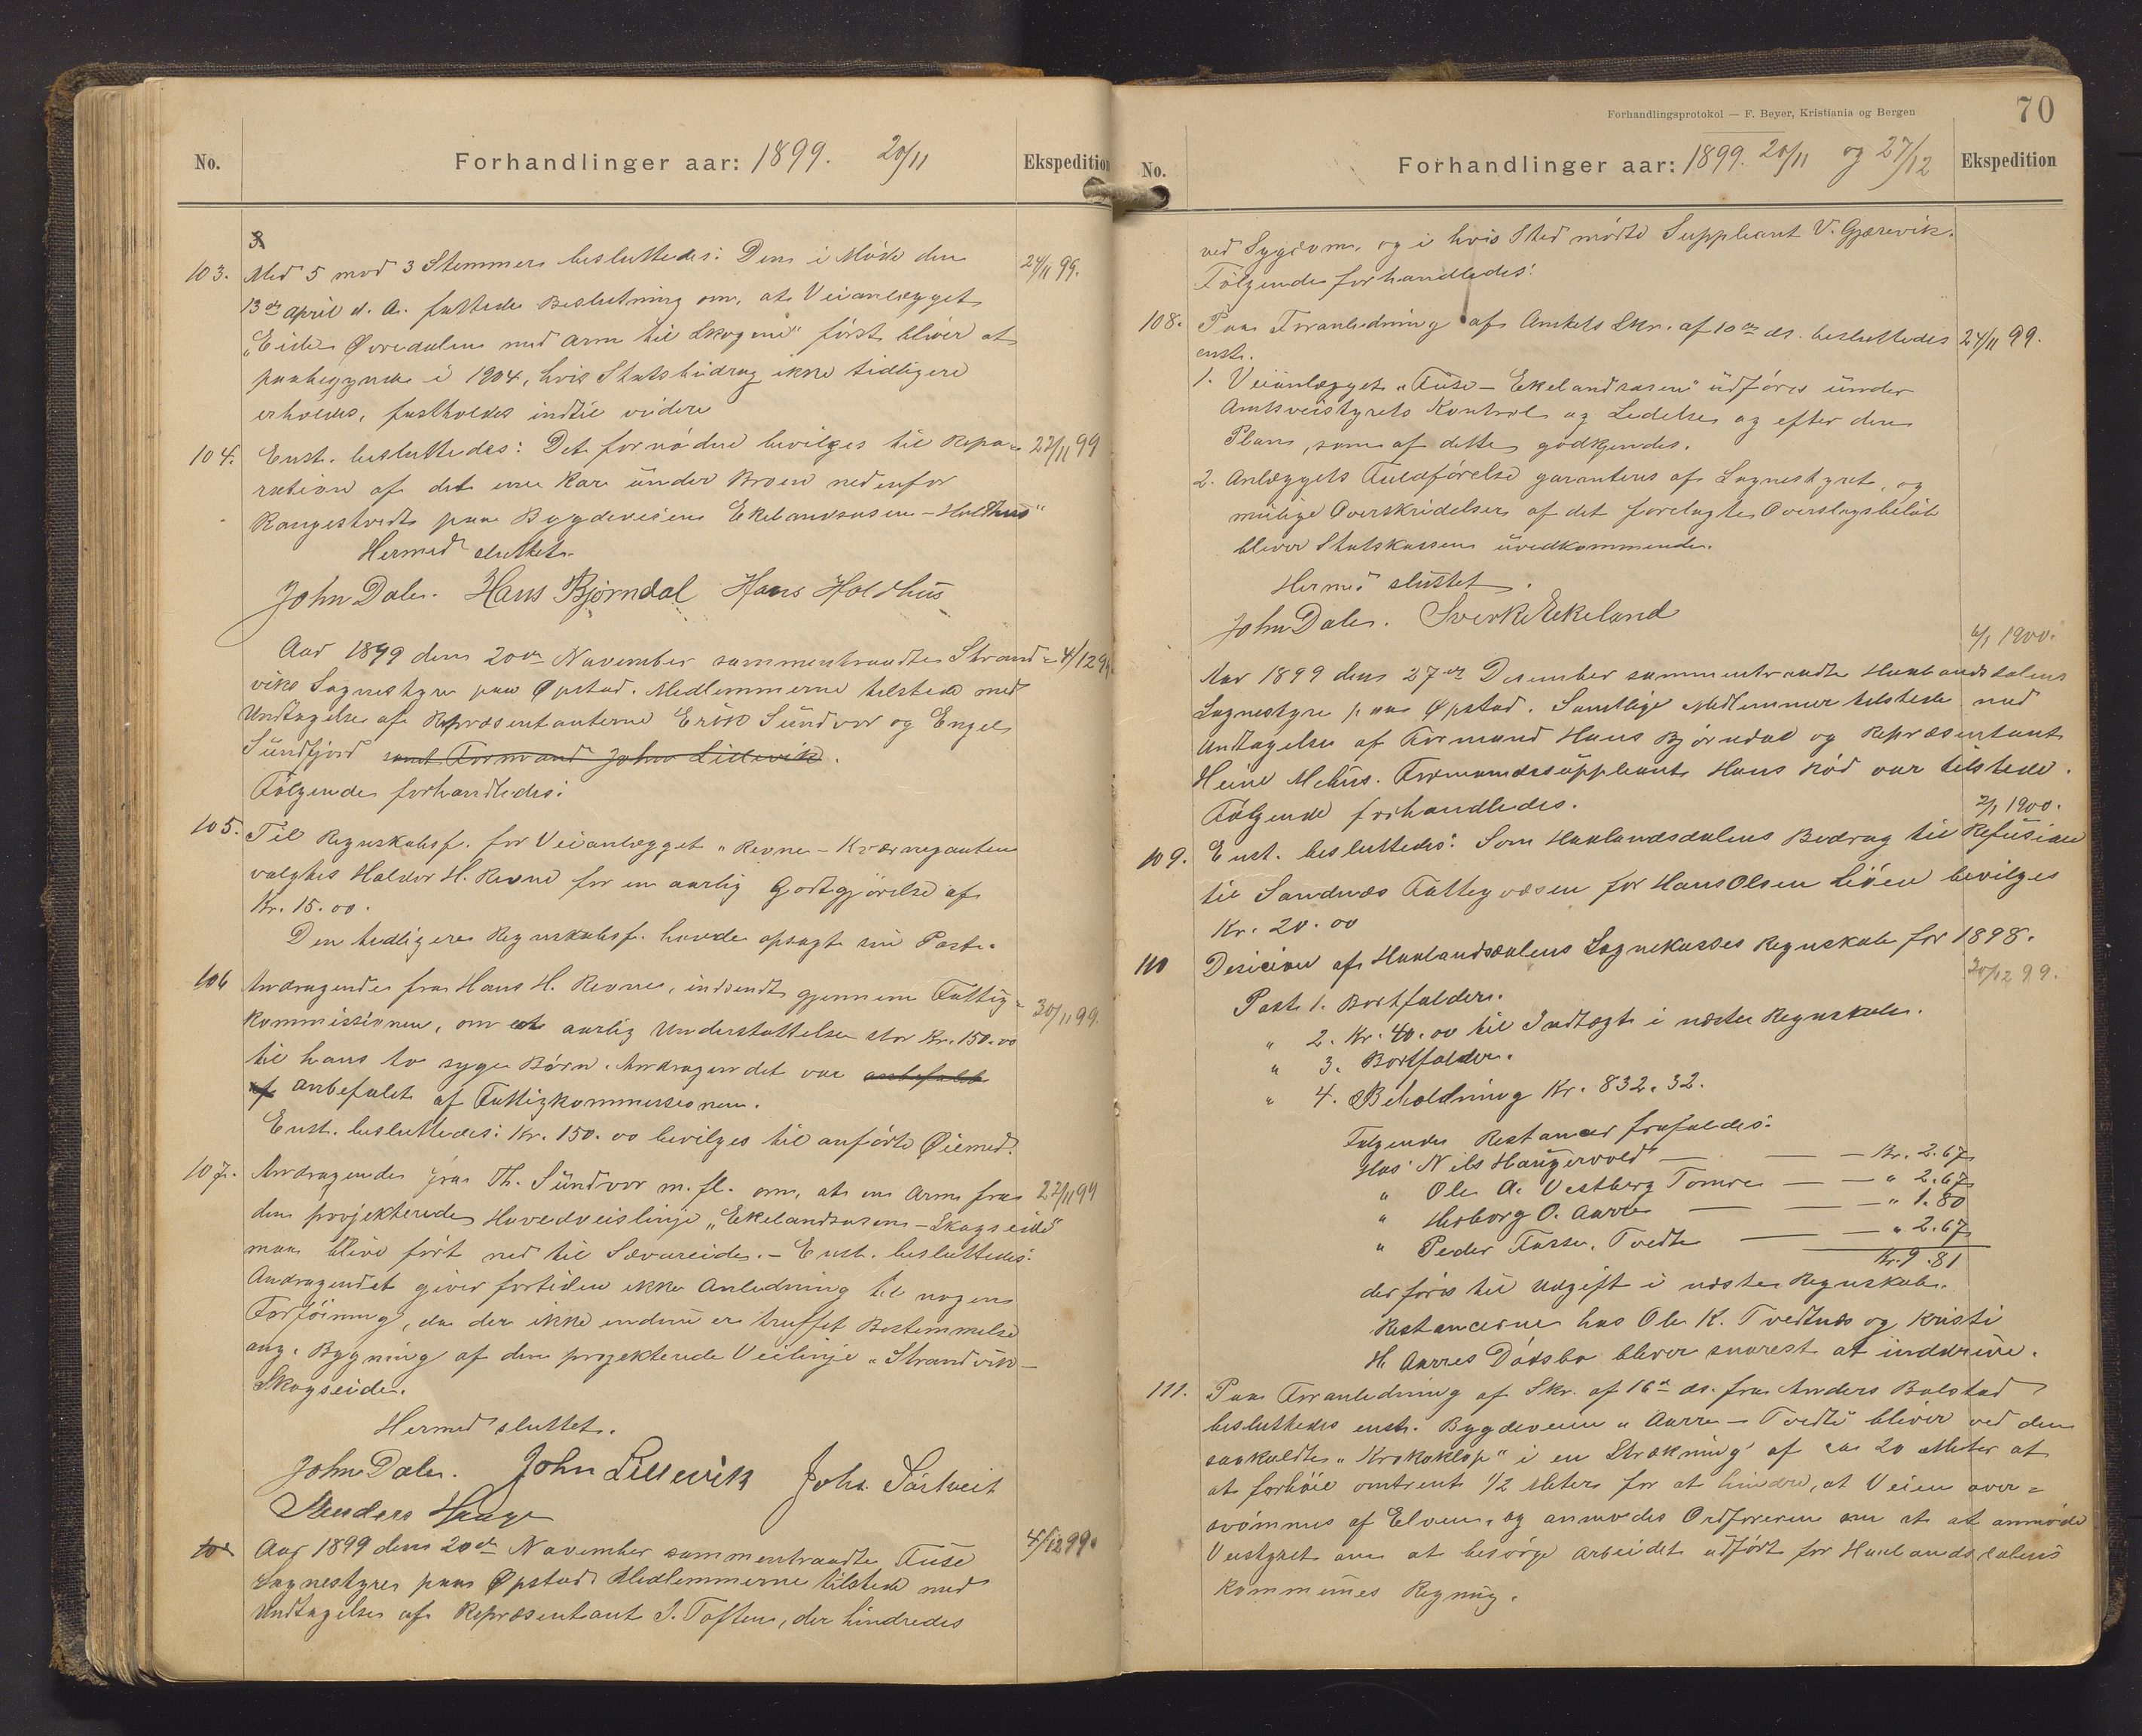 No. Forhandlinger aar: 1899. 20/11 Ekspedition
103. Med 5 mod 3 Stemmer besluttedes: Den i Møde den 24/11 99.
13de April d. A. fattede Beslutning om, at Veianlægget
"Eide Øvredalen med Arm til Skogene" først bliver at
paabegynde i 1904, hvis Statsbidrag ikke tidligere
erholdes, fastholdes indtil videre
104. Enst. besluttedes: Det fornødne bevilges til Repa= 22/11 99
ration af det ene Kar under Broen nedenfor
Rangestvedt paa Bygdeveien Ekelandsosen – Holdhus"
Hermed sluttet.
John Dale. Hans Bjørndal Hans Holdhus
Aar 1899 den 20de November sammentraadte Strand= 4/12 99
viks Sognestyre paa Øpstad. Medlemmerne tilstede med
Undtagelse af Repræsentanterne Erik Sundvor og Engel
Sundfjord samt Formand John Lillevik.
Følgende forhandledes:
105. Til Regnskabsf. for Veianlægget "Revne – Kværnegauten
valgtes Haldor H. Revne for en aarlig Godtgjørelse af
Kr. 15.00.
Den tidligere Regnskabsf. havde opsagt sin Post.
106 Andragende fra Hans H. Revne, indsendt gjennem Fattig= 30/11 99.
kommissionen, om et aarlig Understøttelse stor Kr. 150.00
til hans to syge Børn. Andragendet var anbefalet
af anbefalet af Fattigkommissionen.
Enst. besluttedes: Kr. 150.00 bevilges til anførte Øiemed.
107. Andragende fra Th. Sundvor m. fl. om, at en Arm fra 22/11 99
den projekterede Hovedveislinje "Ekelandsosen – Skogseide"
maa blive ført ned til Sævareide. – Enst. besluttedes:
Andragendet giver fortiden ikke Anledning til nogen
Forføining, da der ikke endnu er truffet Bestemmelse
ang. Bygning af den projekterede Veilinje "Strandvik –
Skogseide.
Hermed sluttet.
John Dale. John Lillevik Johs. Sørtveit
Anders Hauge
Aar 1899 den 20de November sammentraadte Fuse 4/12 99.
Sognestyre paa Øpstad. Medlemmerne tilstede med
Undtagelse af Repræsentant J. Toften, der hindredes
Forhandlingsprotokol — F. Beyer, Kristiania og Bergen 70
No. Forhandlinger aar: 1899. 20/11 og 27/12 Ekspedition
ved Sygdom, og i hvis Sted mødte Suppleant V. Gjærevik.
Følgende forhandledes:
108. Paa Foranledning af Amtets Skr. af 10de ds. besluttedes 24/11 99.
enst.
1. Veianlægget "Fuse – Ekelandsosen" udføres under
Amtsveistyrets Kontrol og Ledelse og efter den
Plan, som af dette godkjendes.
2. Anlæggets Fuldførelse garanteres af Sognestyret, og
mulige Overskridelser af det forelagte Overslagsbeløb
bliver Statskassen uvedkommende.
Hermed sluttet.
John Dale. Sverke Ekeland
6/1 1900.
Aar 1899 den 27de December sammentraadte Haalandsdalens
Sognestyre paa Øpstad. Samtlige Medlemmer tilstede med
Undtagelse af Formand Hans Bjørndal og Repræsentant
Heine Mehus. Formandssuppleant Hans Rød var tilstede.
Følgende forhandledes. 2/1 1900.
109. Enst. besluttedes: Som Haalandsdalens Bidrag til Refusion
til Sandnæs Fattigvæsen for Hans Olsen Liøen bevilges
Kr. 20.00
110 Desicion af Haalandsdalens Sognekasses Regnskab for 1898.
30/12 99.
Post 1. Bortfalder.
" 2. Kr. 40.00 til Indtægt i næste Regnskab.
" 3. Bortfalder.
" 4. Beholdning Kr. 832.32.
Følgende Restancer frafaldes:
Hos Nils Haugervold — — — Kr. 2.67
" Ole A. Vestberg Tomre — — " 2.67
" Herborg O. Aarre — — — " 1.80
" Peder Fosse, Tvedte — — " 2.67
Kr. 9.81
der føres til Udgift i næste Regnskab.
Restancerne hos Ole K. Tvedtnæs og Kristi
H. Aarres Dødsbo bliver snarest at inddrive.
111. Paa Foranledning af Skr. af 16de ds. fra Anders Bolstad
besluttedes enst. Bygdeveien "Aarre – Tvedte" bliver ved den
saakaldte "Krokaklop" i en Strækning af ca 20 Meter at
at forhøie omtrent 1/2 Meter for at hindre, at Veien over=
svømmes af Elven, og anmodes Ordføreren om at at anmode
Veistyret om at besørge Arbeidet udført for Haalandsdalens
Kommunes Regning.